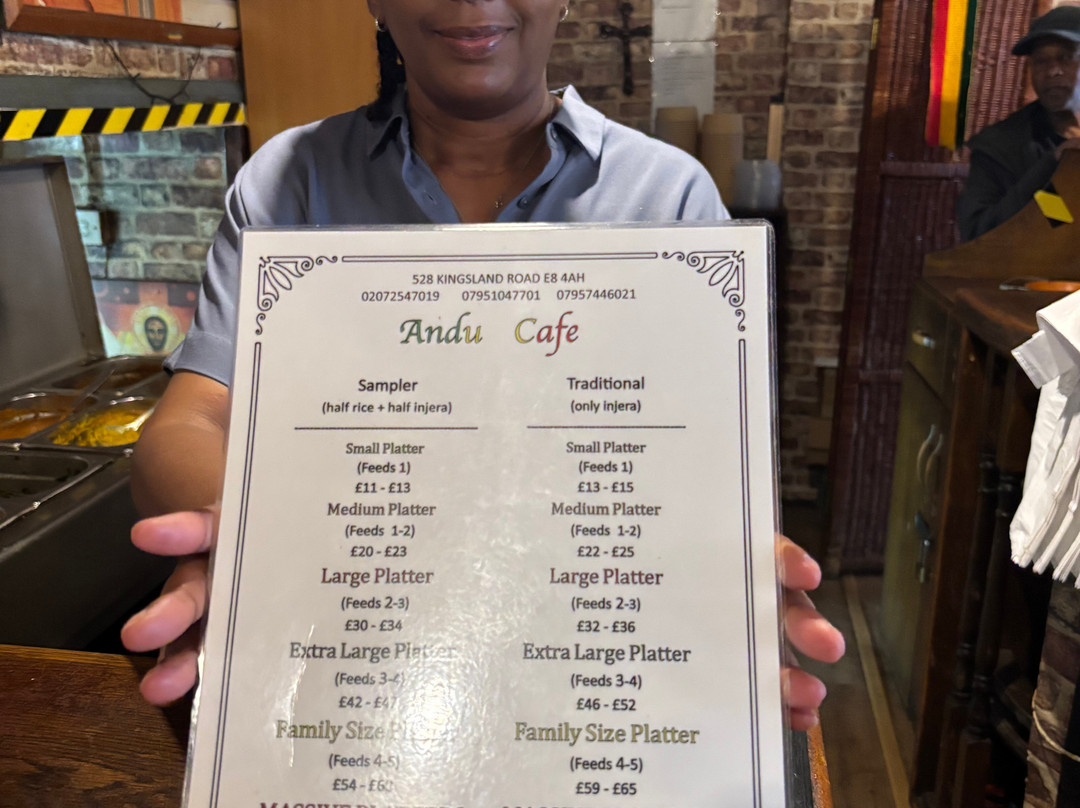 528 KINGSLAND ROAD E8 4AH
02072547019 07951047701 07957446021
Andu Cafe
Sampler
(half rice + half injera)
Small Platter
(Feeds 1)
£11 - £13
Medium Platter
(Feeds 1-2)
£20 - £23
Large Platter
(Feeds 2-3)
£30 - £34
Extra Large Platter
(Feeds 3-4)
£42 - £47
Family Size
(Feeds 4-5)
£54 -
Traditional
(only injera)
Small Platter
(Feeds 1)
£13 - £15
Medium Platter
(Feeds 1-2)
£22 - £25
Large Platter
(Feeds 2-3)
£32 - £36
Extra Large Platter
(Feeds 3-4)
£46 - £52
Family Size Platter
(Feeds 4-5)
£59 - £65